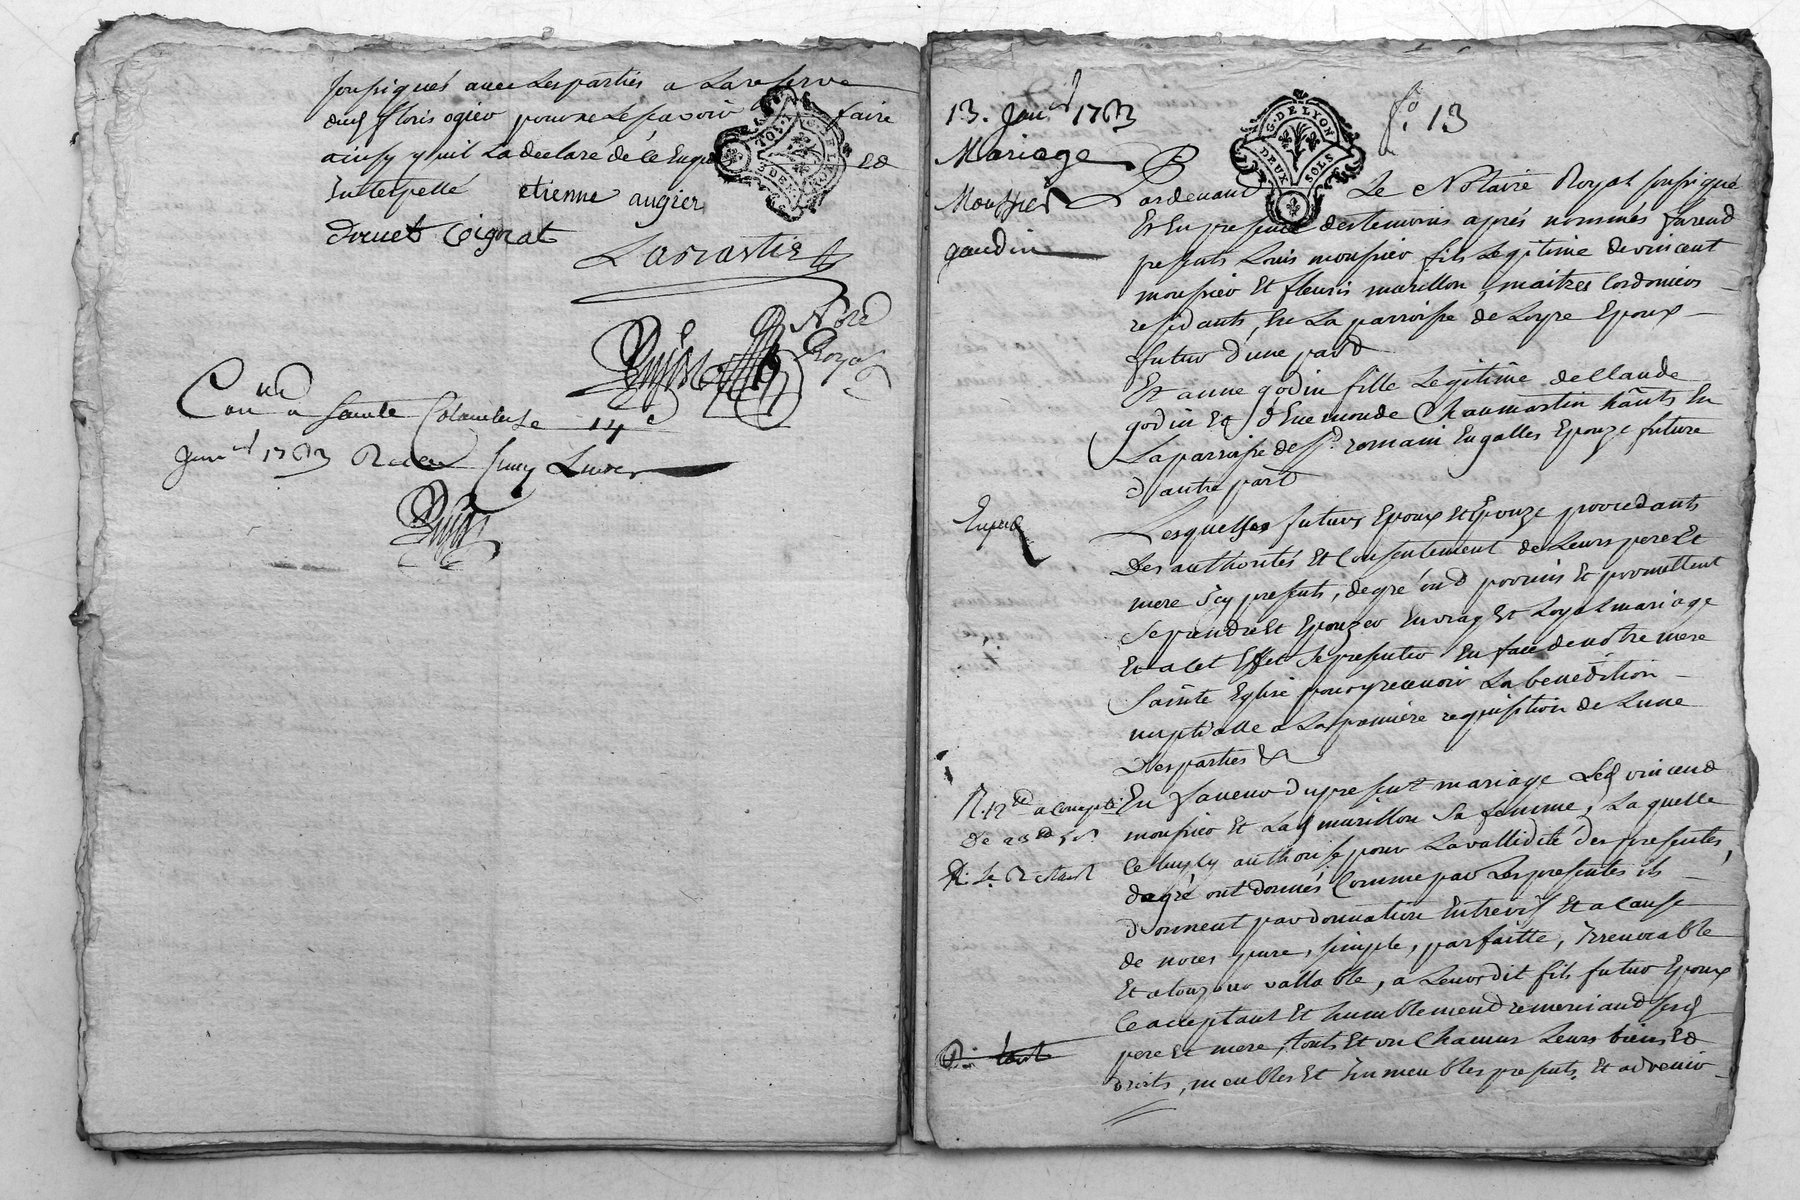 soussignés avec les parties a la reserve
dud floris ogier pour ne le scavoir faire
ainsy quil la declaré de ce enquis Ed
Interpellé etienne augier
drevet Coignat
Labrastie
Not.e
Royal
Con.lé a sainte Colombe le 14e
Janv.r 1763 Receu cinq Livres
13. Janv.r 1763
fo. 13
Mariage
G. DE LYON
DEUX SOLS
Moussier
gaudin
Pardevand Le Notaire Royal soussigné
Et En presence des temoins aprés nommés furend
presents Louis moussier fils Legitime de vincent
moussier Et fleurie marillon, maitres Cordoniers
residants, En La parroisse de Loyre Epoux
futur d'une pard
Et anne godin fille Legitime de Claude
godin Et d'Enemonde Chaumartin hãnts En
La parroisse de st. romain En galles Epouze future
d'autre part
Expedé
Lesquelles futurs Epoux Et Epouze procedants
Des authorités Et Consentement de Leurs pere Et
mere Icy presents, de gré ond promis Et promettent
se prendre Et Epouzer En vray Et Loyal mariage
Et a cet Effet se presenter En face de notre mere
Sainte Eglise pour y recevoir La benediction
nuptialle a La premiere requisition de L'une
Des parties &
R. 12d a Compte
De 23d 5s
R. Le Restant
En faveur du present mariage Led vincend
moussier Et Lad marillon sa femme, La quelle
Ce luy cy authorise pour La vallidité des presentes,
de gré ont donnés Comme par Les presentes ils
donnent par donnation Entrevif Et a cause
de noces pure, simple, parfaitte, Irrevocable
Et a toujour vallable, a Leurdit fils futur Epoux
Ce acceptant Et humblemend remerciand sesd
pere Et mere, touts Et un Chacuns Leurs biens Ed
droits, meubles Et Immeubles presents Et advenir